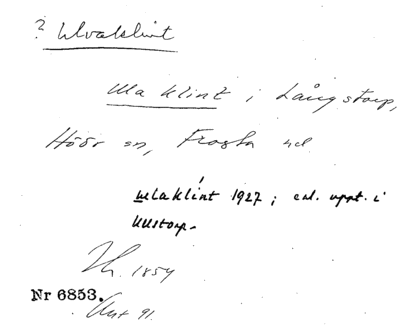 ? Ulvaklint
Ula klint i Långstorp,
Höör sn, Frosta hd
ulaklint 1927; enl. uppt. i
Ullstorp.
1854
Nr 6853.
Ant 91.